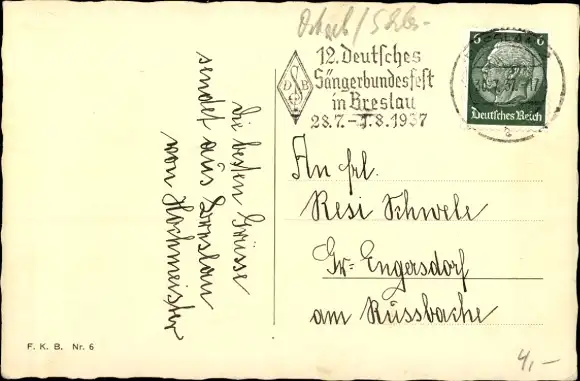 12. Deutsches
Sängerbundesfest
in Breslau
28.7.-1.8.1937
D S B
6 6
Deutsches Reich
Die besten Grüsse
sendet aus Breslau
von Hochmeister
An Frl.
Resi Schwele
Gr. Engersdorf
am Russbache
F. K. B. Nr. 6
4,-